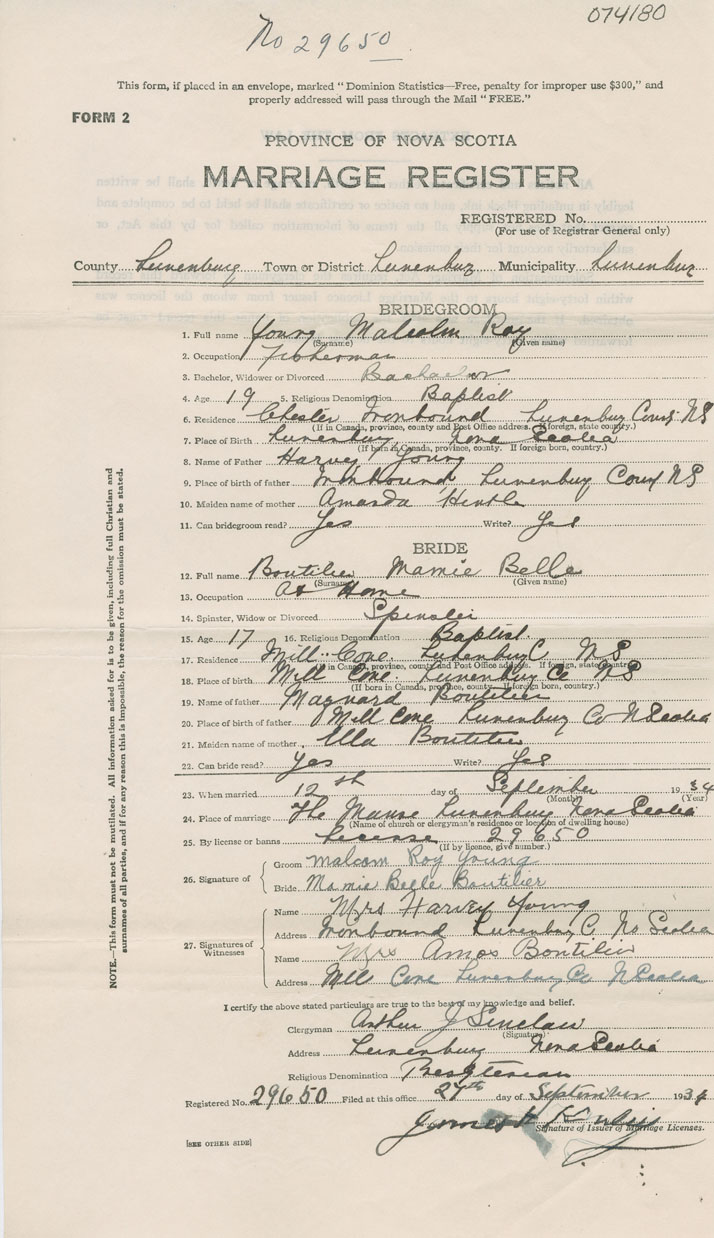 074180
No 29650
This form, if placed in an envelope, marked "Dominion Statistics—Free, penalty for improper use $300," and
properly addressed will pass through the Mail "FREE."
FORM 2
PROVINCE OF NOVA SCOTIA
MARRIAGE REGISTER
REGISTERED No.
(For use of Registrar General only)
County Lunenburg Town or District Lunenburg Municipality Lunenburg
BRIDEGROOM
1. Full name Young Malcolm Roy
(Surname) (Given name)
2. Occupation Fisherman
3. Bachelor, Widower or Divorced Bachelor
4. Age 19 5. Religious Denomination Baptist
6. Residence Chester Ironbound Lunenburg County NS
(If in Canada, province, county and Post Office address. If foreign, state country.)
7. Place of Birth Lunenburg, Nova Scotia
(If born in Canada, province, county. If foreign born, country.)
8. Name of Father Harvey Young
9. Place of birth of father Ironbound Lunenburg County NS
10. Maiden name of mother Amanda
11. Can bridegroom read? Yes Write? Yes
BRIDE
12. Full name Boutilier Mamie Belle
(Surname) (Given name)
13. Occupation At Home
14. Spinster, Widow or Divorced Spinster
15. Age 17 16. Religious Denomination Baptist.
17. Residence Mill Cove. Lunenburg C N S
(If in Canada, province, county and Post Office address. If foreign, state country)
18. Place of birth Mill Cove. Lunenburg Co NS
(If born in Canada, province, county. If foreign born, country.)
19. Name of father Maynard Boutilier
20. Place of birth of father Mill Cove Lunenburg Co N Scotia
21. Maiden name of mother Ella Boutilier
22. Can bride read? Yes Write? Yes
23. When married 12th day of September 1934
(Month) (Year)
24. Place of marriage The Manse Lunenburg Nova Scotia
(Name of church or clergyman's residence or location of dwelling house)
25. By license or banns license 29650
(If by licence, give number.)
26. Signature of
Groom Malcom Roy Young
Bride Mamie Belle Boutilier
27. Signatures of Witnesses
Name Mrs Harvey Young
Address Ironbound Lunenburg C No Scotia
Name Mrs Amos Boutilier
Address Mill Cove Lunenburg Co N Scotia
I certify the above stated particulars are true to the best of my knowledge and belief.
Clergyman Arthur J Sinclair
(Signature)
Address Lunenburg Nova Scotia
Religious Denomination Presbyterian
Registered No. 29650 Filed at this office 27th day of September 1934
James
Signature of Issuer of Marriage Licenses.
[SEE OTHER SIDE]
NOTE.—This form must not be mutilated. All information asked for is to be given, including full Christian and
surnames of all parties, and if for any reason this is impossible, the reason for the omission must be stated.